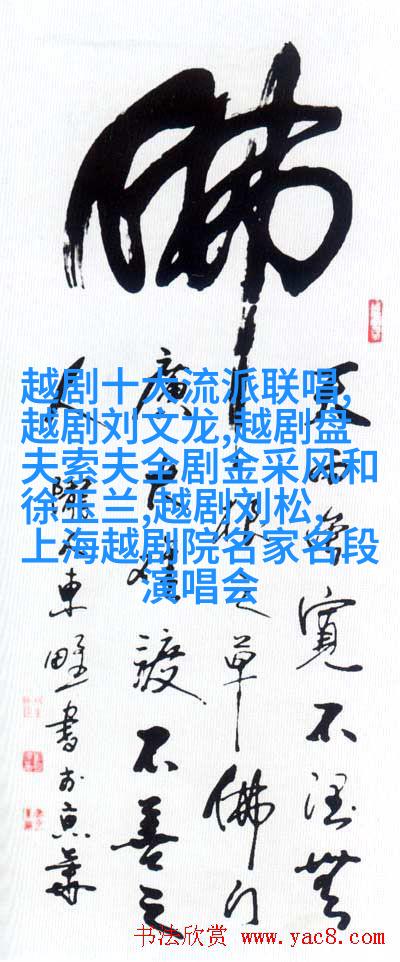 佛
天雨寬不潤無
根之草佛门
廣難渡不善之
人 東野書於京華
越剧十大流派联唱,
越剧刘文龙,越剧盘
夫索夫全剧金采风和
徐玉兰,越剧刘松,
上海越剧院名家名段
演唱会
书法欣赏 www.yac8.com